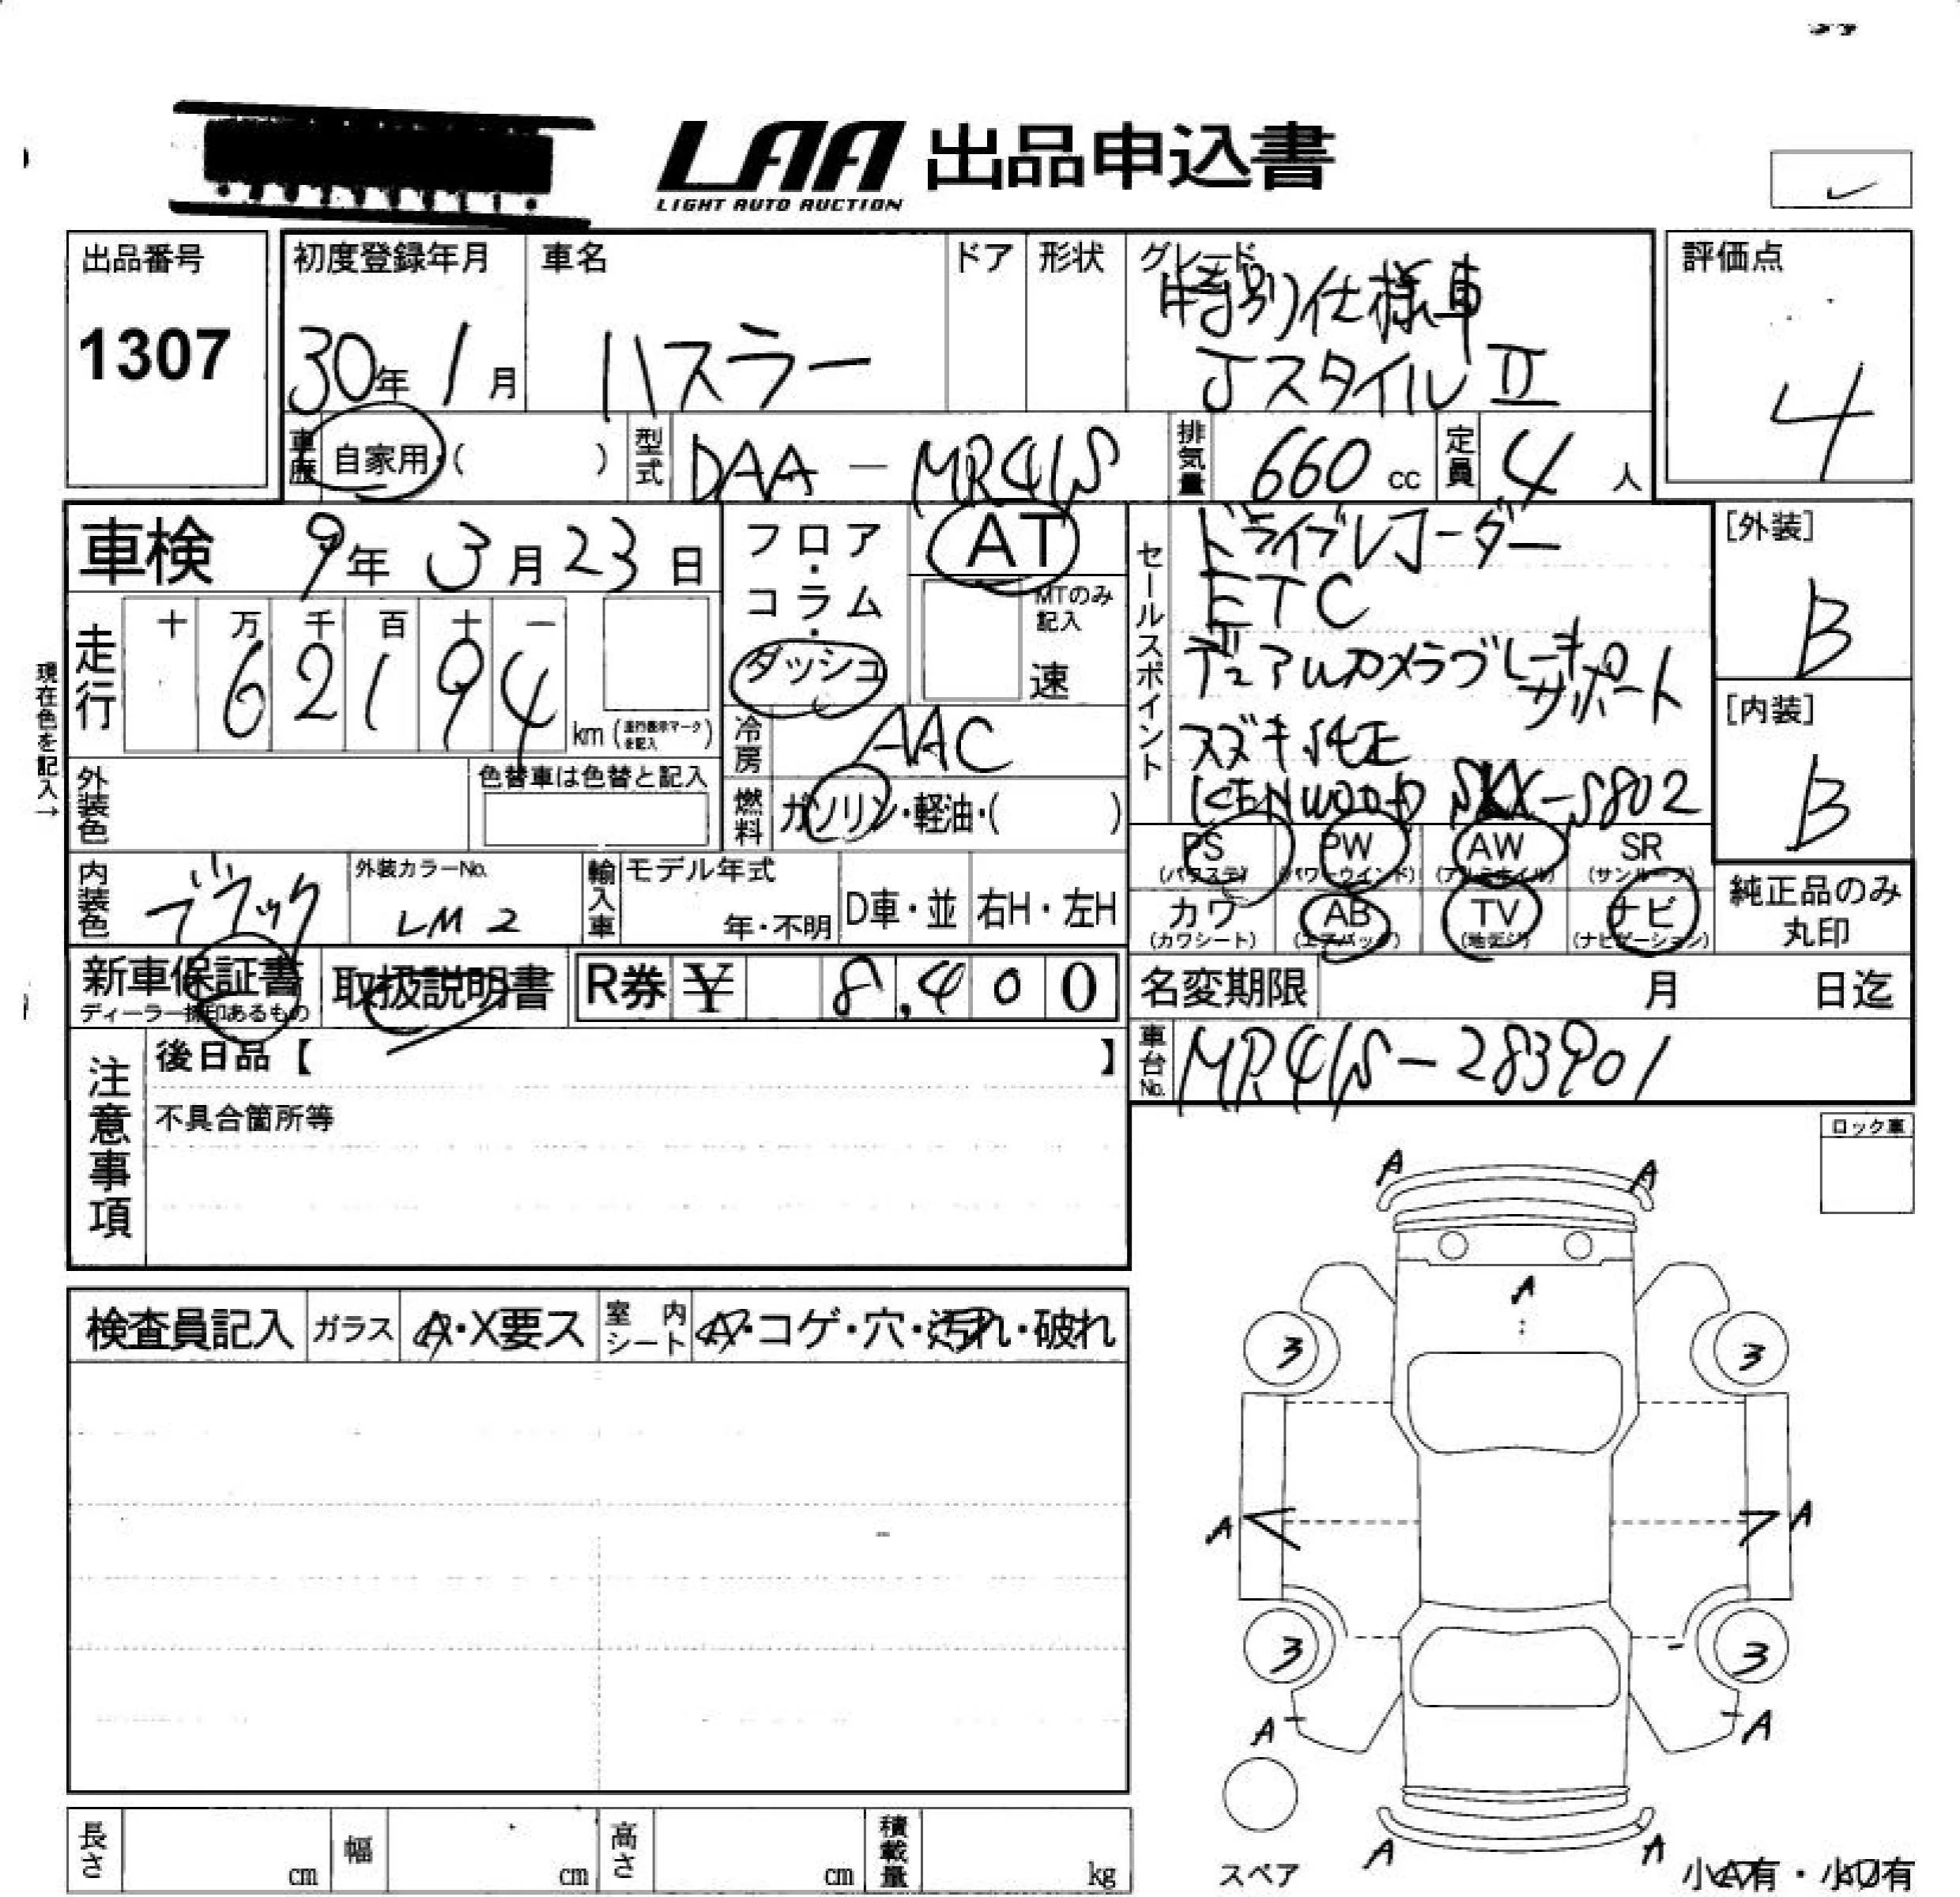 LAA 出品申込書
LIGHT AUTO AUCTION
出品番号
1307
初度登録年月
30年1月
車名
ハスラー
ドア
形状
グレード
特別仕様車
JスタイルⅡ
評価点
4
車歴
自家用・( )
型式
DAA-MR41S
排気量
660cc
定員
4人
車検
9年3月23日
フロア・コラム・ダッシュ
AT
MTのみ記入
速
セールスポイント
ドライブレコーダー
ETC
デュアルカメラブレーキサポート
スズキ純正
KENWOOD S802
[外装]
B
[内装]
B
現在色を記入→
走行
十 万 千 百 十 一
6 2 1 9 4
km (走行表示マークを記入)
冷房
AAC
外装色
色替車は色替と記入
燃料
ガソリン・軽油・( )
PS
(パワステ)
PW
(パワーウインド)
AW
(アルミホイル)
SR
(サンルーフ)
カワ
(カワシート)
AB
(エアバッグ)
TV
(地デジ)
ナビ
(ナビゲーション)
純正品のみ
丸印
内装色
ブラック
外装カラーNo.
LM2
輸入車
モデル年式
年・不明
D車・並
右H・左H
新車保証書
ディーラー捺印あるもの
取扱説明書
R券 ¥ 8,400
名変期限
月 日迄
注意事項
後日品【 】
不具合箇所等
車台No.
MR41S-283901
ロック車
検査員記入
ガラス
A・X要ス
室内シート
A・コゲ・穴・汚れ・破れ
A A
A
3 3
A A
3 3
A A
A A
スペア
小A有・小U有
長さ cm
幅 cm
高さ cm
積載量 kg